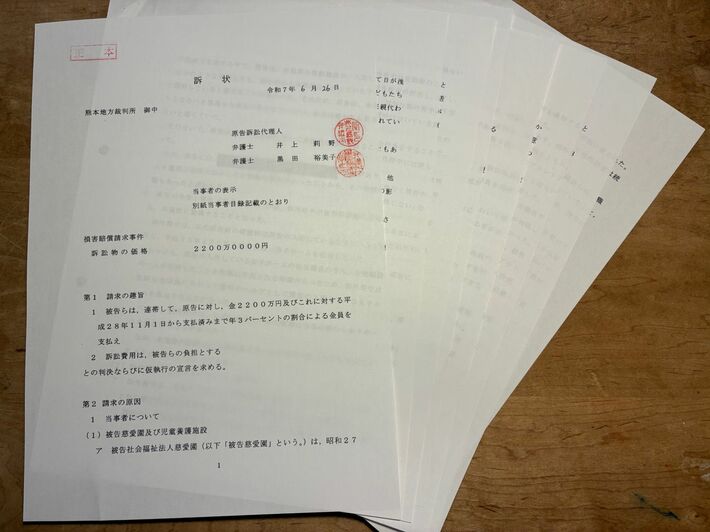 正本
訴　状
令和7年 6月 26日
熊本地方裁判所　御中
原告訴訟代理人
弁護士　井　上　莉　野
弁護士　黒　田　裕美子
当事者の表示
別紙当事者目録記載のとおり
損害賠償請求事件
訴訟物の価格　２２００万００００円
第１　請求の趣旨
１　被告らは，連帯して，原告に対し，金２２００万円及びこれに対する平
成２８年１１月１日から支払済みまで年３パーセントの割合による金員を
支払え
２　訴訟費用は，被告らの負担とする
との判決ならびに仮執行の宣言を求める。
第２　請求の原因
１　当事者について
（１）被告慈愛園及び児童養護施設
ア　被告社会福祉法人慈愛園（以下「被告慈愛園」という。）は，昭和２７
1
て日が浅
どもたち
親代わ
れてい
もあ
他
の影
さ
と
る
か
た。